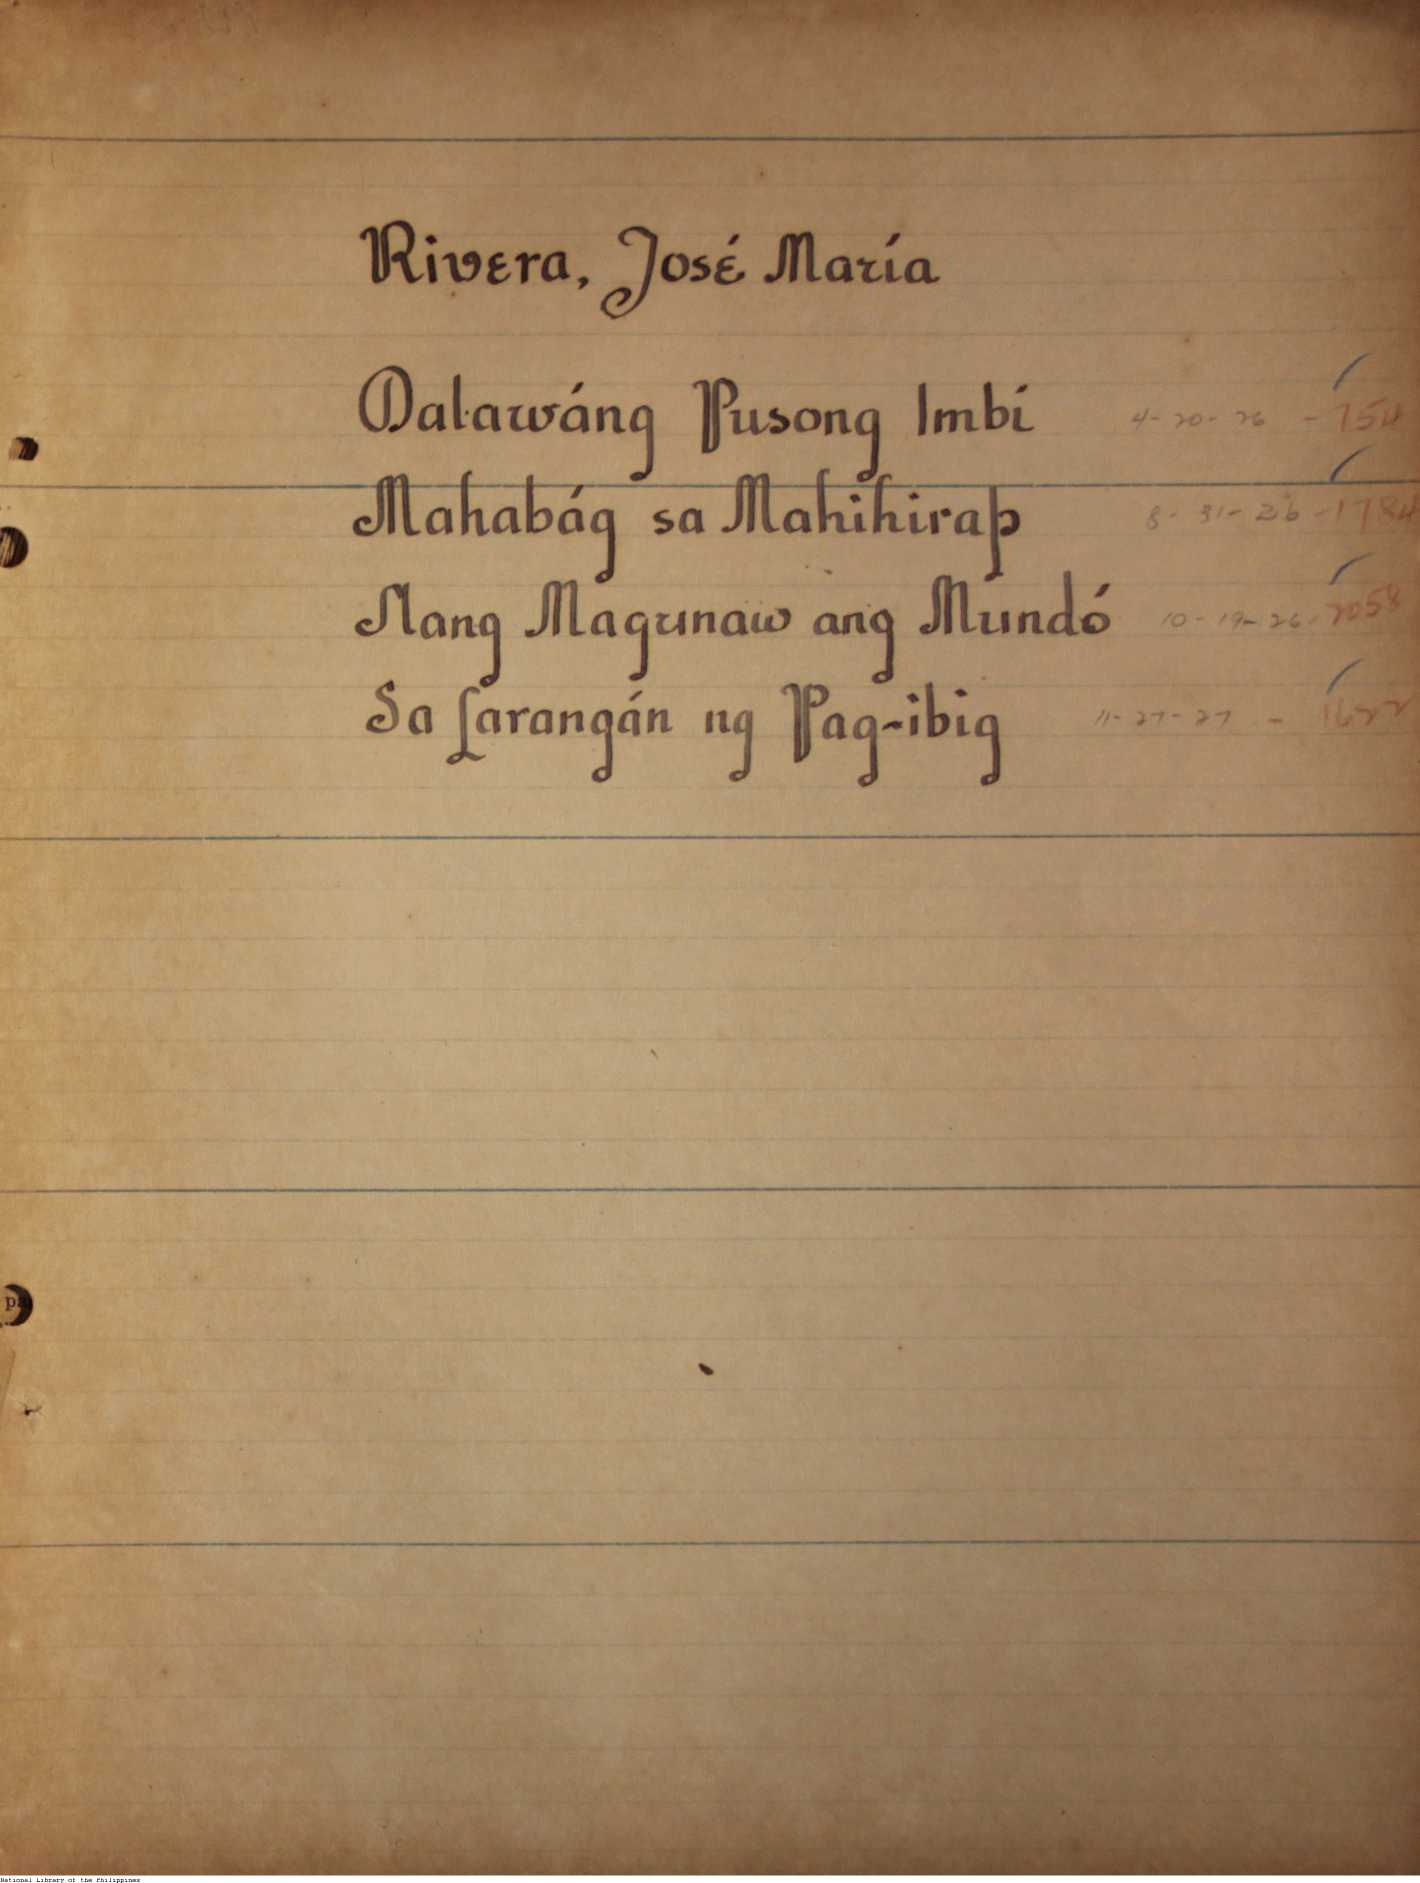 Rivera, José María
Dalawáng Pusong Imbí 4-20-26 - 754
Mahabág sa Mahihirap 8-31-26 - 1784
Nang Magunaw ang Mundó 10-19-26 - 2058
Sa Larangán ng Pag-ibig 11-27-27 - 1622
pa
National Library of the Philippines